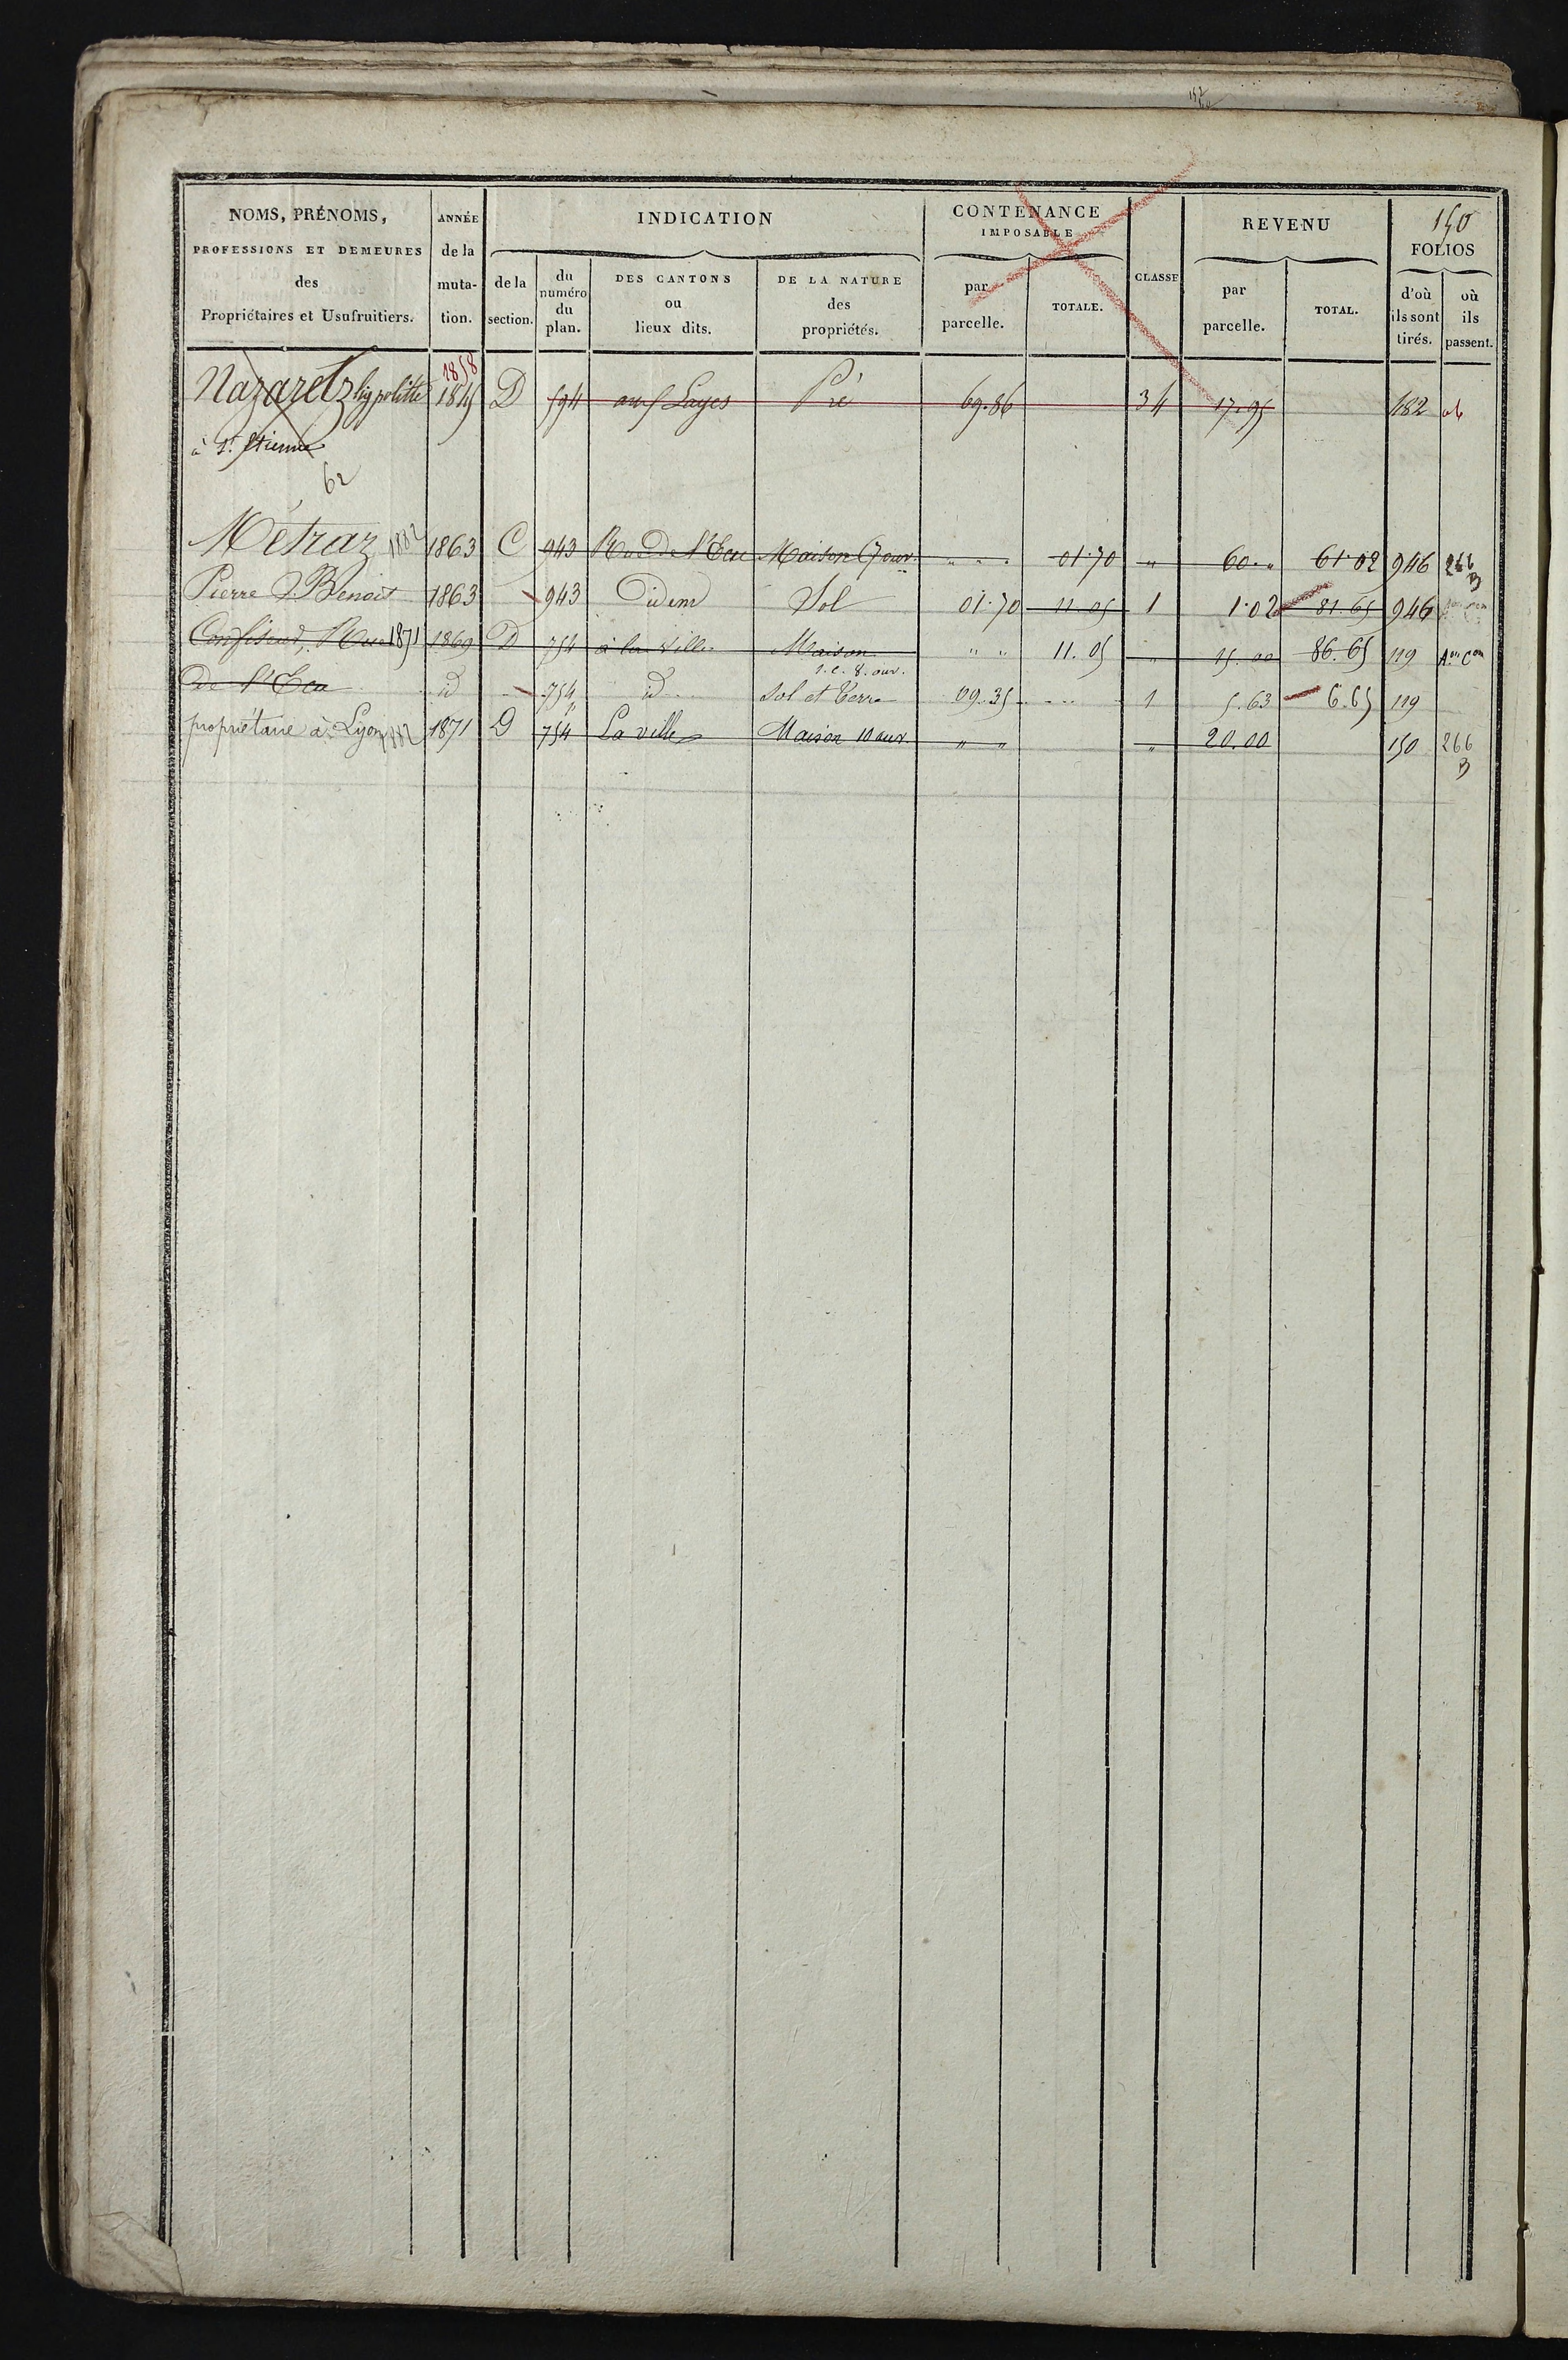 150
NOMS, PRÉNOMS, PROFESSIONS ET DEMEURES des Propriétaires et Usufruitiers.
ANNÉE de la muta- tion.
INDICATION
de la section.
du numéro du plan.
DES CANTONS ou lieux dits.
DE LA NATURE des propriétés.
CONTENANCE IMPOSABLE
par parcelle.
TOTALE.
CLASSE
REVENU
par parcelle.
TOTAL.
FOLIOS
d'où ils sont tirés.
où ils passent.
1858
Nazaretz hyppolitte 1845 D 594 Layes Pré 69.86 34 17.95 182
à St. Etienne
62
Métraz 1882 1863 C 943 Rue De l'Ecu Maison 7 ouv. " " " 01.70 " 60 " 61.02 946 266 B
Pierre Benoit 1863 943 Idem Sol 01.70 11.05 1 1.02 81.65 946
Confiseur, Rue 1871 1869 D 754 à la Ville Maison " " 11.05 " 15.00 86.65 119 Aon Con
1. e. 8. ouv.
de l'Ecu id 754 id Sol et Terre 09.35 1 5.63 6.65 119
propriétaire à Lyon 1882 1871 D 754 La ville Maison 10 ouv. " " " 20.00 150 266 B